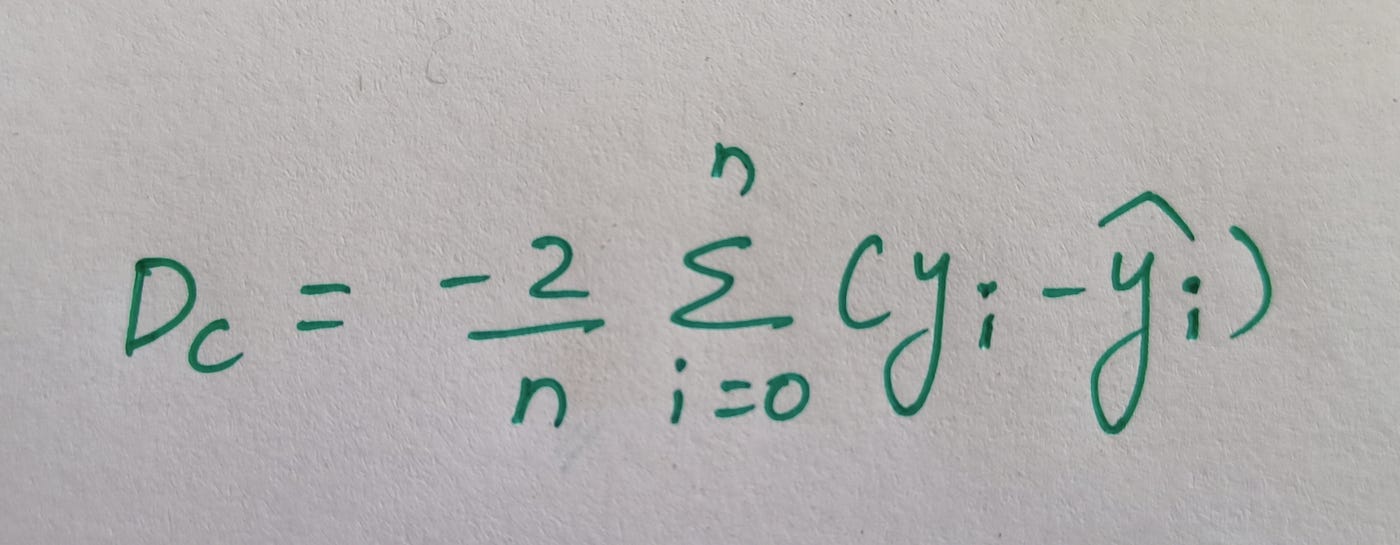 D_c = \frac{-2}{n} \sum_{i=0}^{n} (y_i - \hat{y_i})